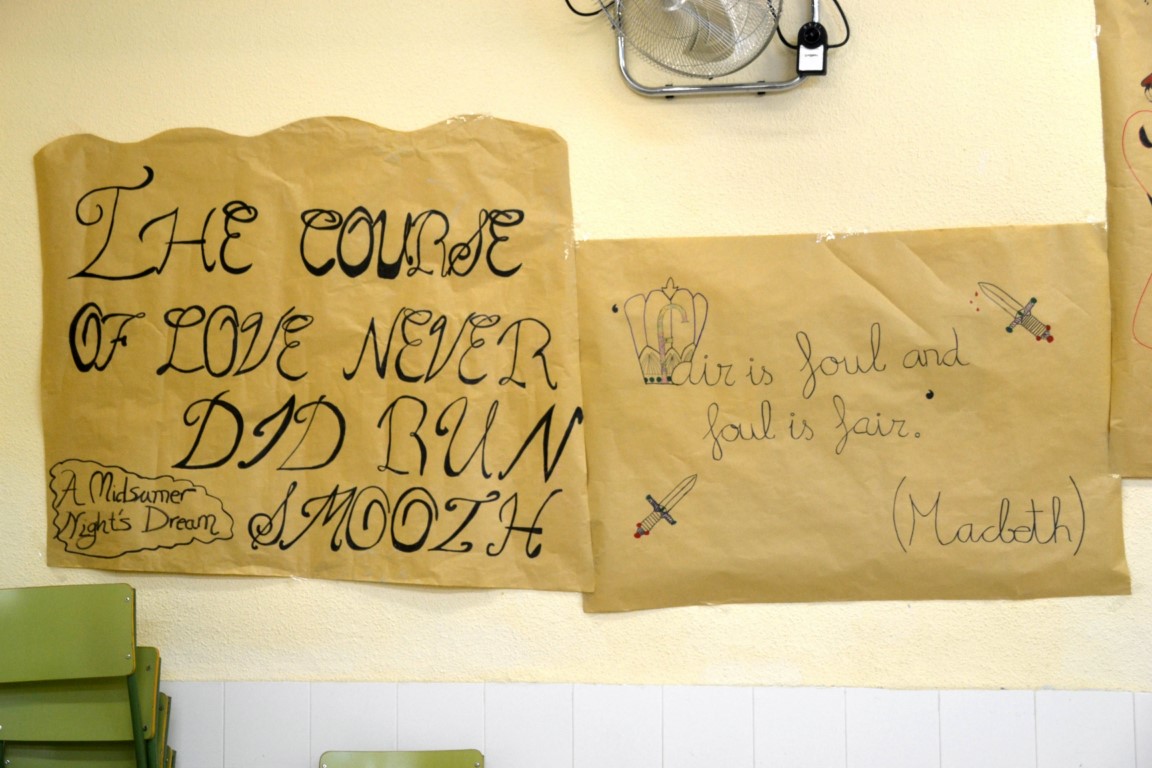 THE COURSE
OF LOVE NEVER
DID RUN
SMOOTH
A Midsumer
Night's Dream
‘Fair is foul and
foul is fair.’
(Macbeth)